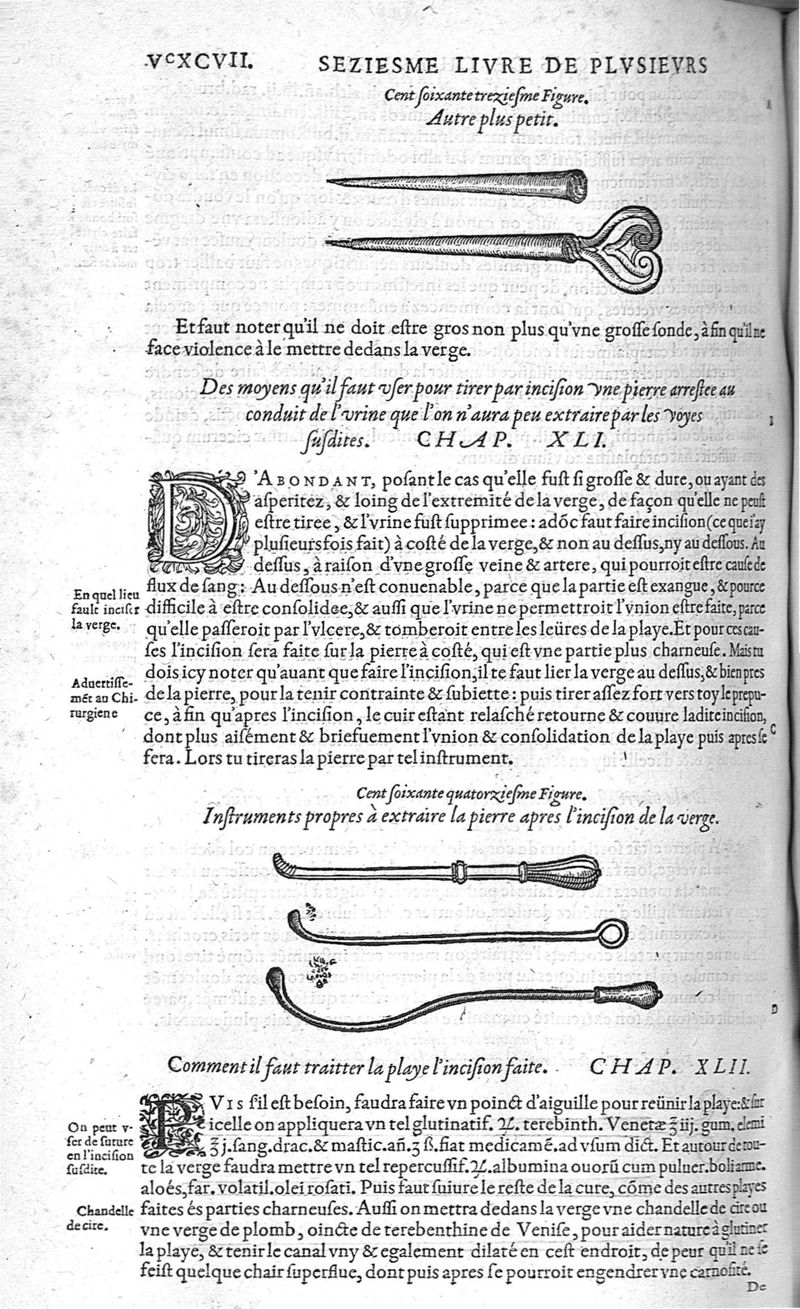 .VᶜXCVII. SEZIESME LIVRE DE PLVSIEVRS
Cent ſoixante treziesme Figure.
Autre plus petit.
Et faut noter qu'il ne doit eſtre gros non plus qu'vne groſſe ſonde, à fin qu'il ne
face violence à le mettre dedans la verge.
Des moyens qu'il faut vſer pour tirer par inciſion vne pierre arreſtee au
conduit de l'vrine que l'on n'aura peu extraire par les voyes
ſuſdites. CHAP. XLI.
D'ABONDANT, poſant le cas qu'elle fuſt ſi groſſe & dure, ou ayant des
aſperitez, & loing de l'extremité de la verge, de façon qu'elle ne peuſt
eſtre tiree, & l'vrine fuſt ſupprimee : adōc faut faire inciſion (ce que i'ay
pluſieurs fois fait) à coſté de la verge, & non au deſſus, ny au deſſous. Au
deſſus, à raiſon d'vne groſſe veine & artere, qui pourroit eſtre cauſe de
flux de ſang : Au deſſous n'eſt conuenable, parce que la partie eſt exangue, & pource
difficile à eſtre conſolidee, & auſſi que l'vrine ne permettroit l'vnion eſtre faite, parce
qu'elle paſſeroit par l'vlcere, & tomberoit entre les leüres de la playe. Et pour ces cau-
ſes l'inciſion ſera faite ſur la pierre à coſté, qui eſt vne partie plus charneuſe. Mais tu
dois icy noter qu'auant que faire l'inciſion, il te faut lier la verge au deſſus, & bien pres
de la pierre, pour la tenir contrainte & ſubiette : puis tirer aſſez fort vers toy le prepu-
ce, à fin qu'apres l'inciſion, le cuir eſtant relaſché retourne & couure ladite inciſion,
dont plus aiſément & briefuement l'vnion & conſolidation de la playe puis apres ſe
fera. Lors tu tireras la pierre par tel inſtrument.
En quel lieu
fault inciſer
la verge.
Aduertiſſe-
mēt au Chi-
rurgien e
C
Cent ſoixante quatorzieſme Figure.
Inſtruments propres à extraire la pierre apres l'inciſion de la verge.
D
Comment il faut traitter la playe l'inciſion faite. CHAP. XLII.
PVIS s'il eſt beſoin, faudra faire vn poinct d'aiguille pour reünir la playe: & ſur
icelle on appliquera vn tel glutinatif. ℞. terebinth. Venetæ ℥iij. gum. elemi
℥j. ſang. drac. & maſtic. añ. ʒ ß. fiat medicamē. ad vſum dict. Et autour de tou-
te la verge faudra mettre vn tel repercuſſif. ℞. albumina ouorū cum puluer. boli arme.
aloés, far. volatil. olei roſati. Puis faut ſuiure le reſte de la cure, cōme des autres playes
faites és parties charneuſes. Auſſi on mettra dedans la verge vne chandelle de cire ou
vne verge de plomb, oincte de terebenthine de Veniſe, pour aider nature à glutiner
la playe, & tenir le canal vny & egalement dilaté en ceſt endroit, de peur qu'il ne ſe
feiſt quelque chair ſuperflue, dont puis apres ſe pourroit engendrer vne carnoſité.
On peut v-
ſer de ſuture
en l'inciſion
ſuſdite.
Chandelle
de cire.
De